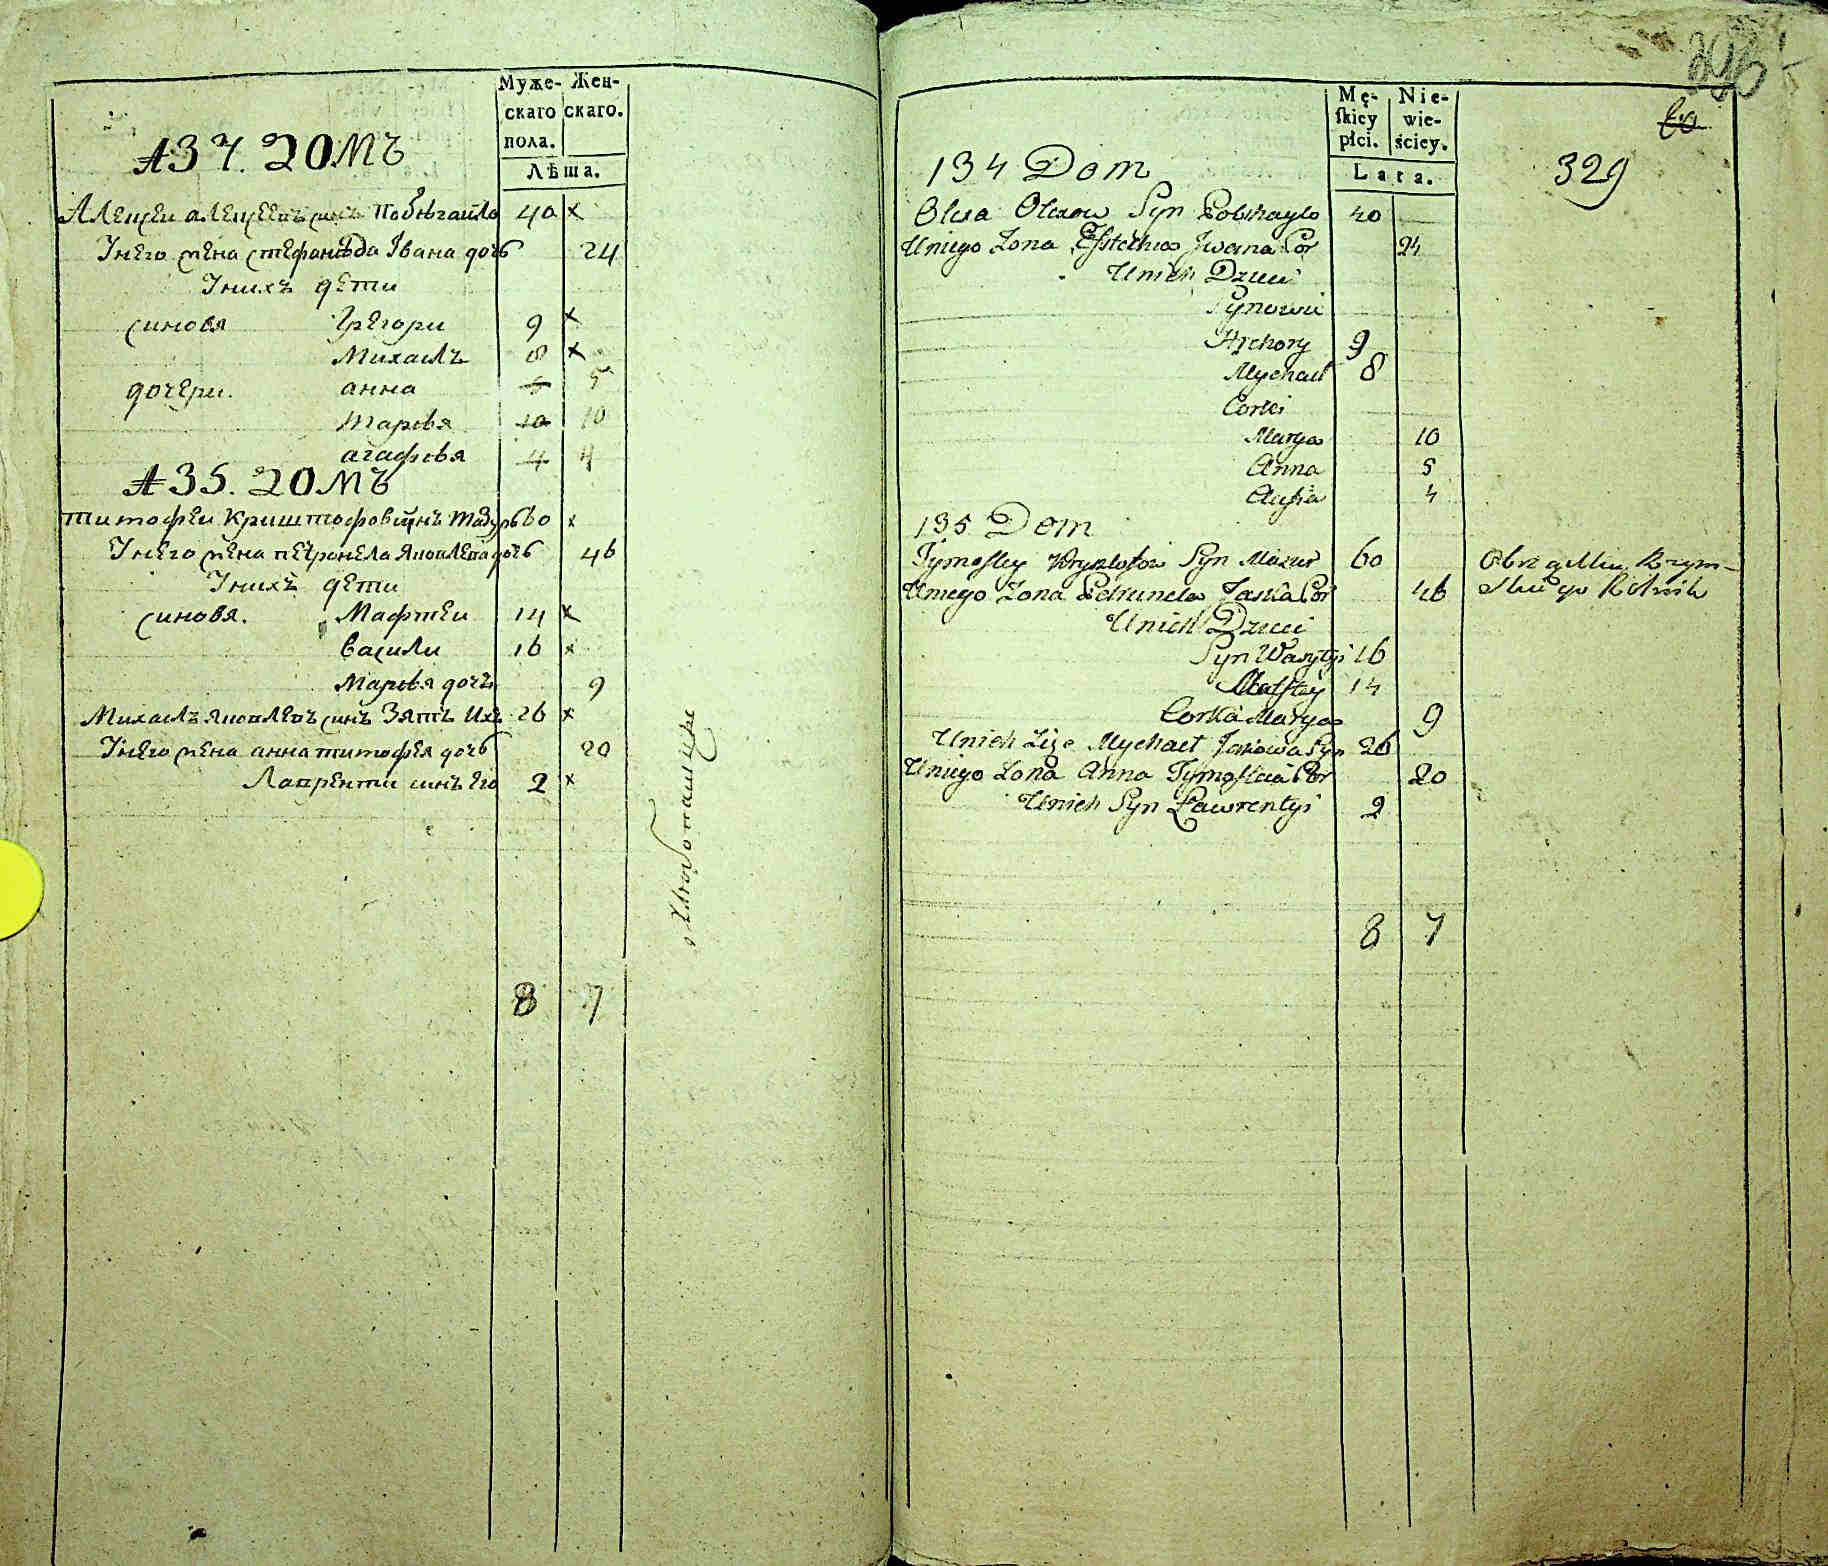 Муже- Жен-
скаго скаго.
пола.
Лѣта.
134. ДОМЪ
Алеѯеи алеѯеевъ синъ Побѣгаило 40 x
Інего жена стефанѣда Івана дочь 24
Інихъ дети
синовя Грегори 9 x
Михаилъ 8 x
дочери. анна 5 5
Маревя 10 10
агафевя 4 4
135. ДОМЪ
титофеи Криштофовъ синъ Мазуръ 60 x
Інего жена петронела яковлева дочь 46
Інихъ дети
синовя. Мафтеи 14 x
васили 16 x
Маревя дочь 9
Михаилъ яковлевъ синъ Зять Ихъ 26 x
Інего жена анна титофея дочь 20
Лаврентии синъ его 2 x
8 7
Mę- Nie-
ſkiey wie-
płci. ściey.
Lata.
60
329
134 Dom
Olexa Olexow Syn Pobihaylo 40
Uniego Zona Jwana Cor 24
Unich Dzieci
Synowie
Hrehory 9
Mychail 8
Corki
Marya 10
Anna 5
4
135 Dom
Tymofiey Krysztofow Syn Mazur 60
Uniego Zona Petrunela Jaska Cor 46
Unich Dzieci
Syn Wasylyi 16
Maftey 14
Corka Marya 9
Unich Zięc Mychael Jakowa Syn 26
Uniego Zona Anna Tymofieia Cor 20
Unich Syn Ławrentyi 2
8 7